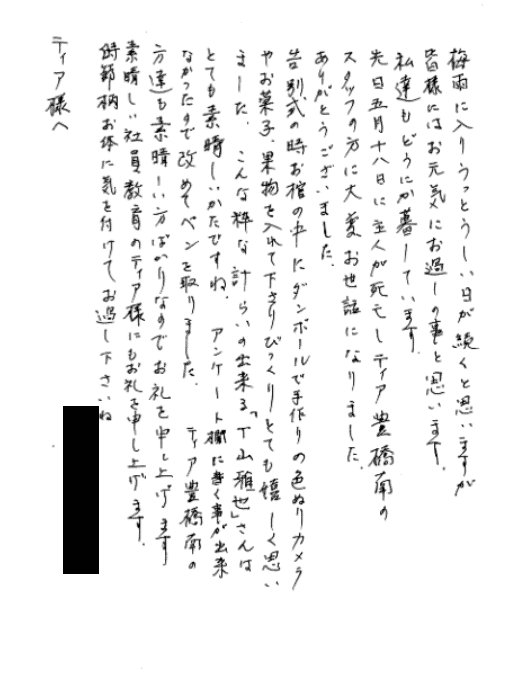 梅雨に入りうっとうしい日が続くと思いますが
皆様にはお元気にお過しの事と思います。
私達もどうにか暮しています。
先日五月十八日に主人が死亡しティア豊橋南の
スタッフの方に大変お世話になりました。
ありがとうございました。
告別式の時お棺の中にダンボールで手作りの色ぬりカメラ
やお菓子、果物を入れて下さりびっくりとても嬉しく思い
ました。こんな粋な計らいの出来る「下山雅也」さんは
とても素晴しいかたですね。アンケート欄に書く事が出来
なかったので改めてペンを取りました。ティア豊橋南の
方達も素晴しい方ばかりなのでお礼を申し上げます
素晴しい社員教育のティア様にもお礼を申し上げます。
時節柄お体に気を付けてお過し下さいね
ティア様へ